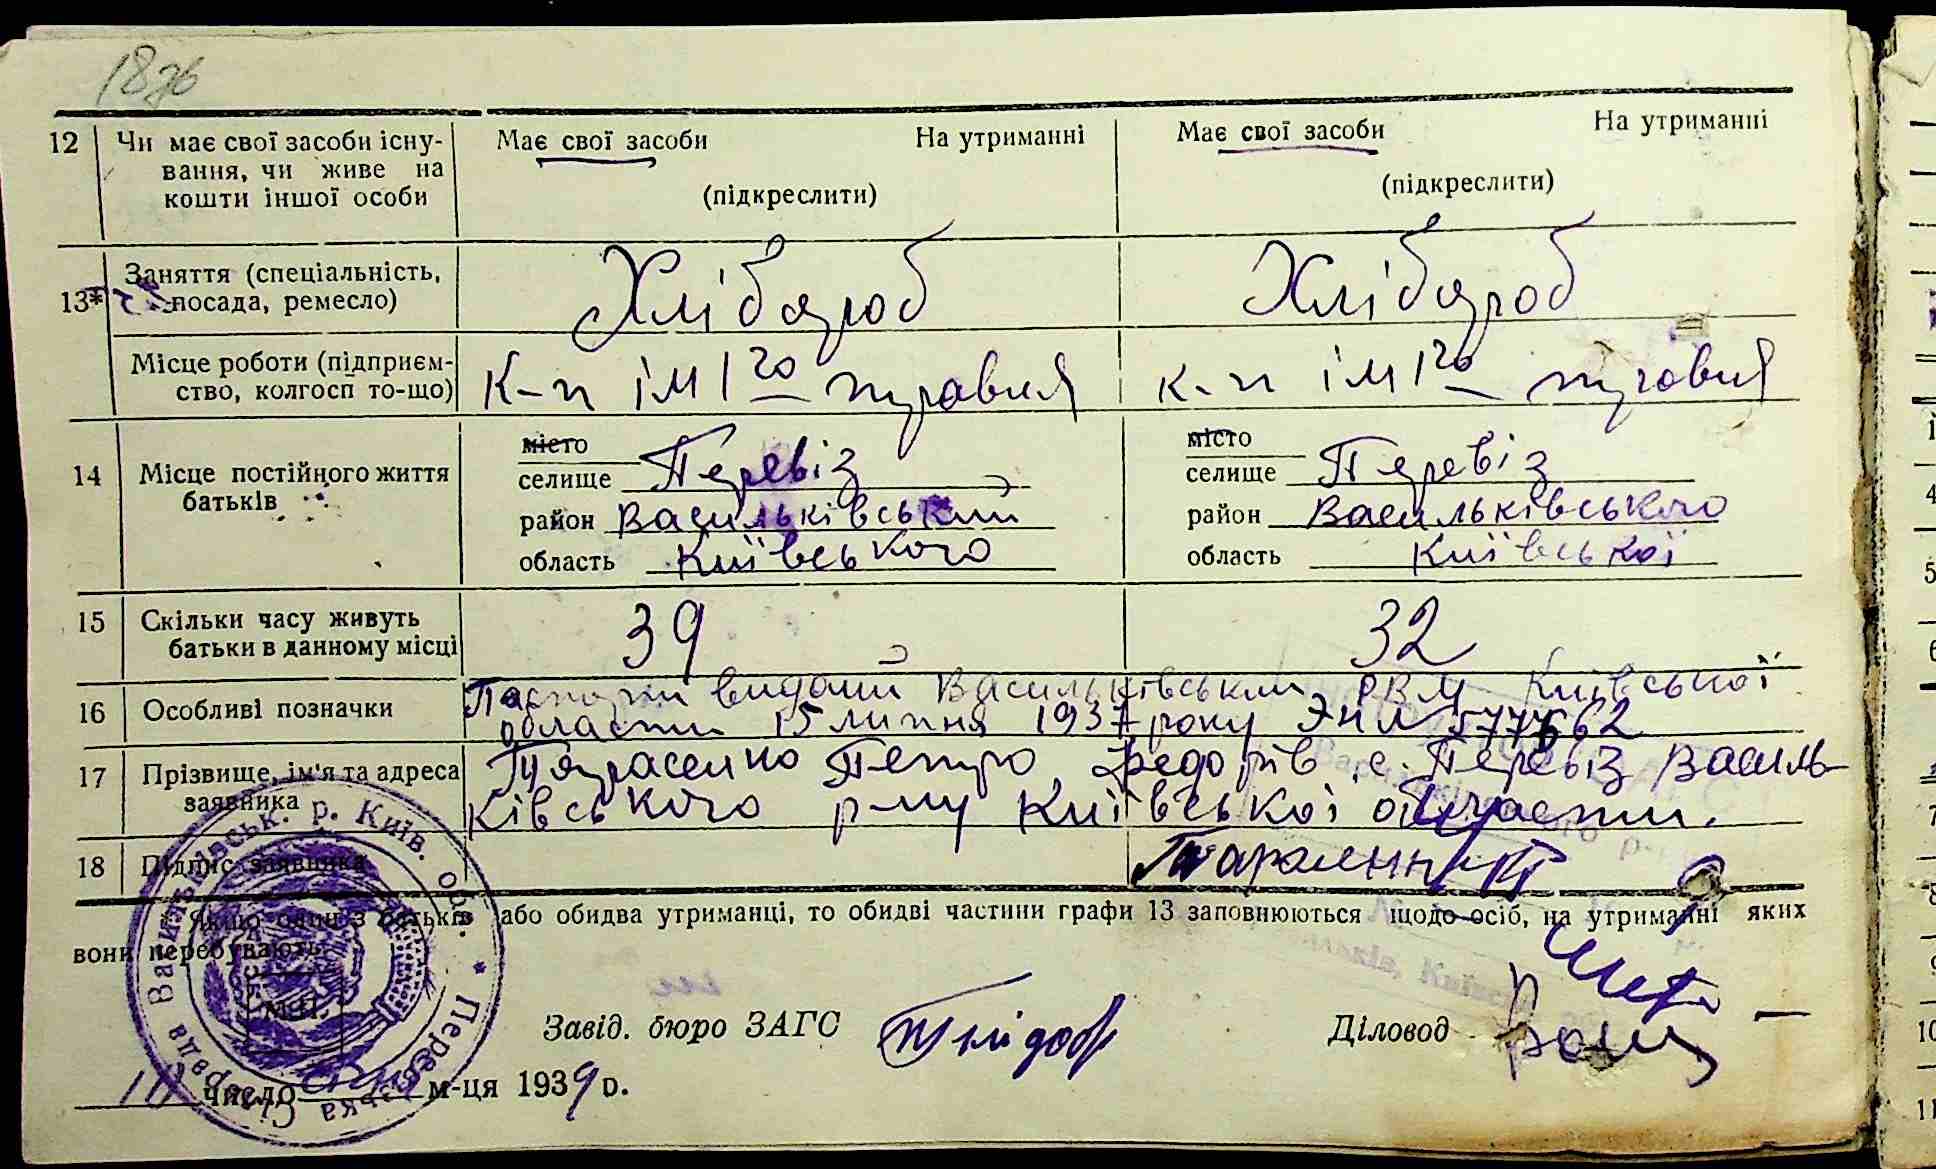 18зв
12 Чи має свої засоби існу- Має свої засоби На утриманні Має свої засоби На утриманні
вання, чи живе на (підкреслити) (підкреслити)
кошти іншої особи
13* Заняття (спеціальність, Хлібороб Хлібороб
посада, ремесло)
Місце роботи (підприєм- К-п ім 1го К-п ім 1го
ство, колгосп то-що)
14 Місце постійного життя місто місто
батьків селище Перевіз селище Перевіз
район Васильківський район Васильківського
область Київського область Київської
15 Скільки часу живуть 39 32
батьки в данному місці
16 Особливі позначки Паспорт виданий Васильківським РВМ Київської
області 15 липня 1937 року
17 Прізвище, ім'я та адреса Тарасенко Петро Федорів с. Перевіз Василь-
заявника ківського р-ну Київської області.
18 Підпис заявника
Якщо один з батьків або обидва утриманці, то обидві частини графи 13 заповнюються щодо осіб, на утриманні яких
вони перебувають.
М.П.
Завід. бюро ЗАГС Діловод
число м-ця 1939 р.
Васильківськ. р. Київ. обл. * Перевізська Сільрада